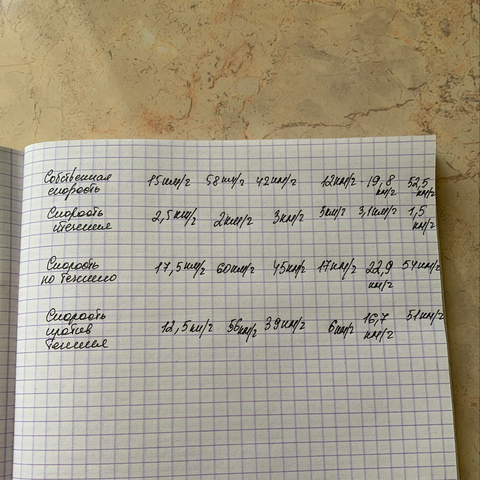 Собственная
скорость 15км/ч 58км/ч 42км/ч 12км/ч 19,8 км/ч 52,5 км/ч
Скорость
течения 2,5км/ч 2км/ч 3км/ч 5км/ч 3,1км/ч 1,5 км/ч
Скорость
по течению 17,5км/ч 60км/ч 45км/ч 17км/ч 22,9 км/ч 54км/ч
Скорость
против
течения 12,5км/ч 56км/ч 39км/ч 6км/ч 16,7 км/ч 51км/ч